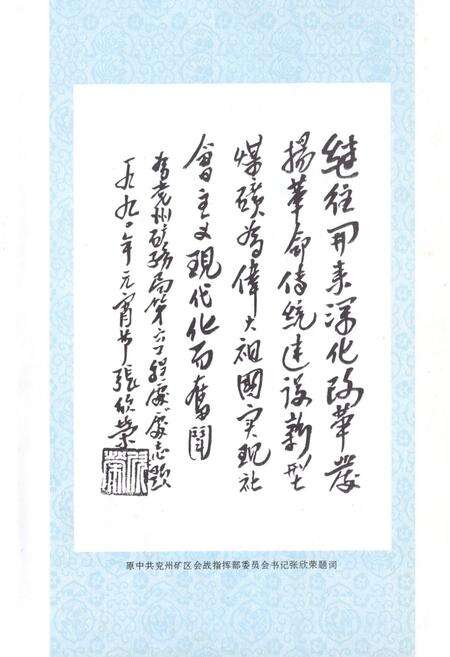 继往开来深化改革發
揚革命传统建设新型
煤礦為偉大祖國实现社
會主义现代化而奮鬪
為兖州矿务局第六工程處處志题
一九九〇年元宵节張欣榮
原中共兖州矿区会战指挥部委员会书记张欣荣题词